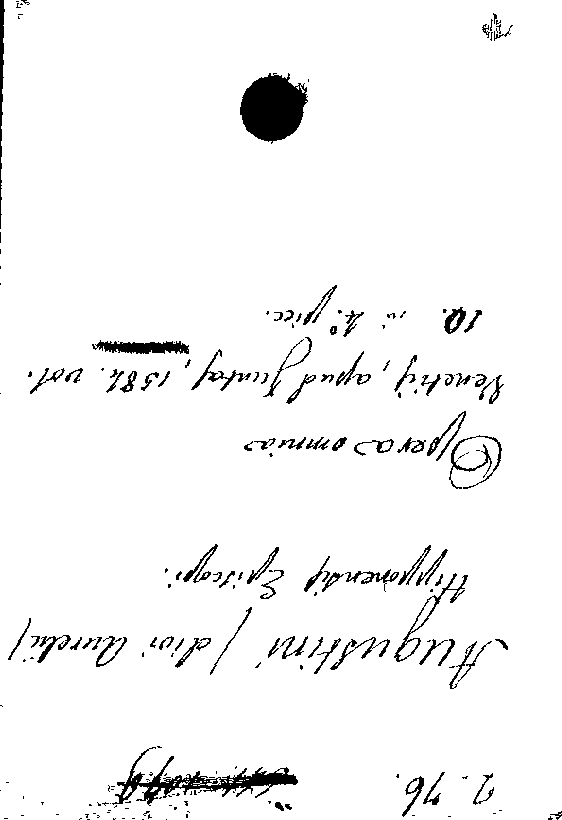 2. 76.
Augustini (divi Aurelii)
Hipponensis Episcopi.
Opera omnia
Venetijs, apud Juntas, 1584. vol.
10. in 4º. picc.